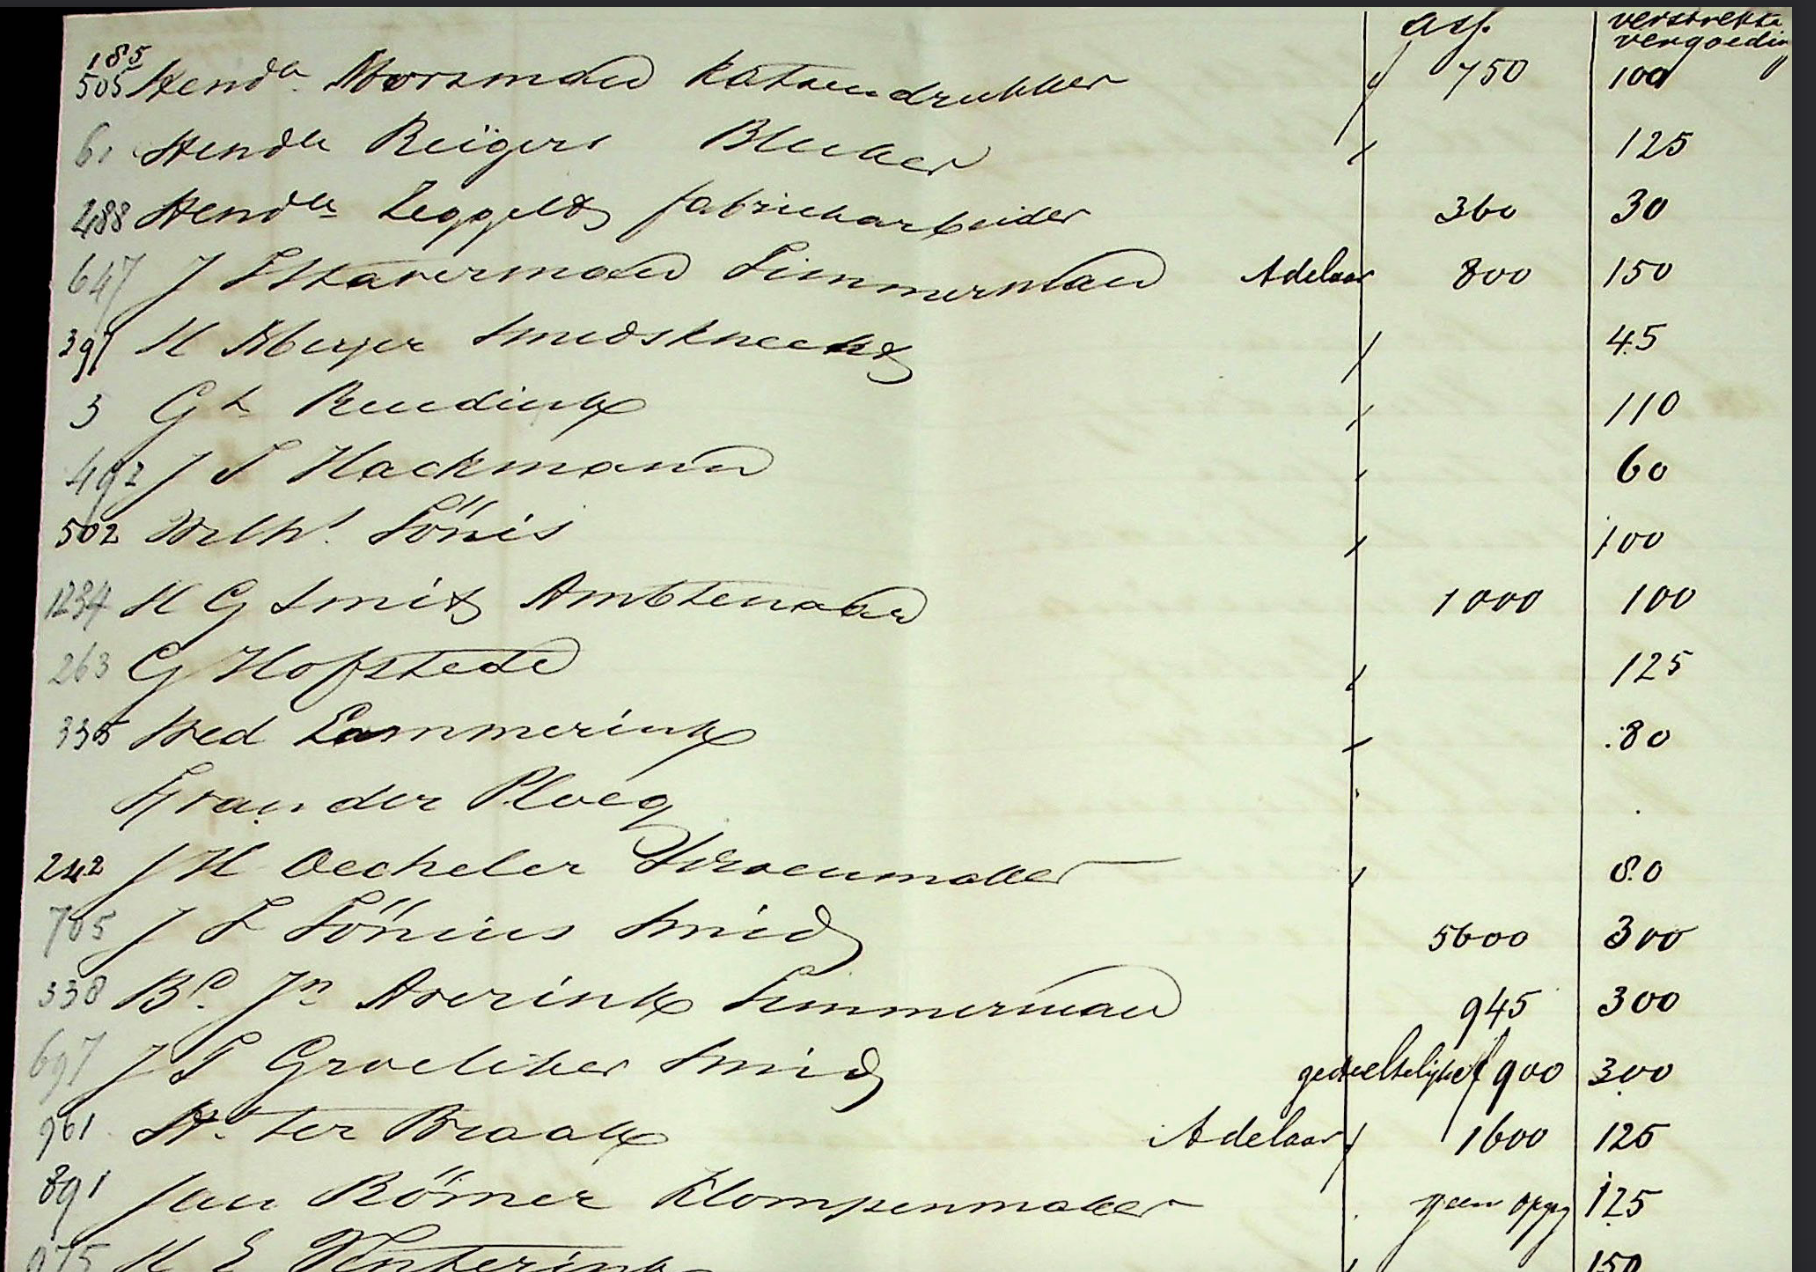 ass. verstrekte
vergoeding
185
505 Hendk Morsman Katoendrukker f 750 100
61 Hendk Reügers Bleeker 125
488 Hendk Leggelt fabriekarbeider 360 30
647 J Staverman Timmerman Adelaar 800 150
391 H Meijer Smidsknecht 45
3 Gt Rendink 110
492 J F Hackmann 60
502 Wilhl Tönis 100
1234 H G Smit Ambtenaar 1000 100
263 G Hofstede 125
335 Wed Lammerink 80
van der Ploeg
242 J H Oecheler Schoenmaker 80
705 J F Tönius Smid 5600 300
338 Bd Jn Averink Timmerman 945 300
697 J F Groeliker Smid gedeeltelijk f 900 300
961 Ht ter Braak Adelaar 1600 125
891 Jan Römer Klompenmaker geen opg 125
975 H E Wenterink 150